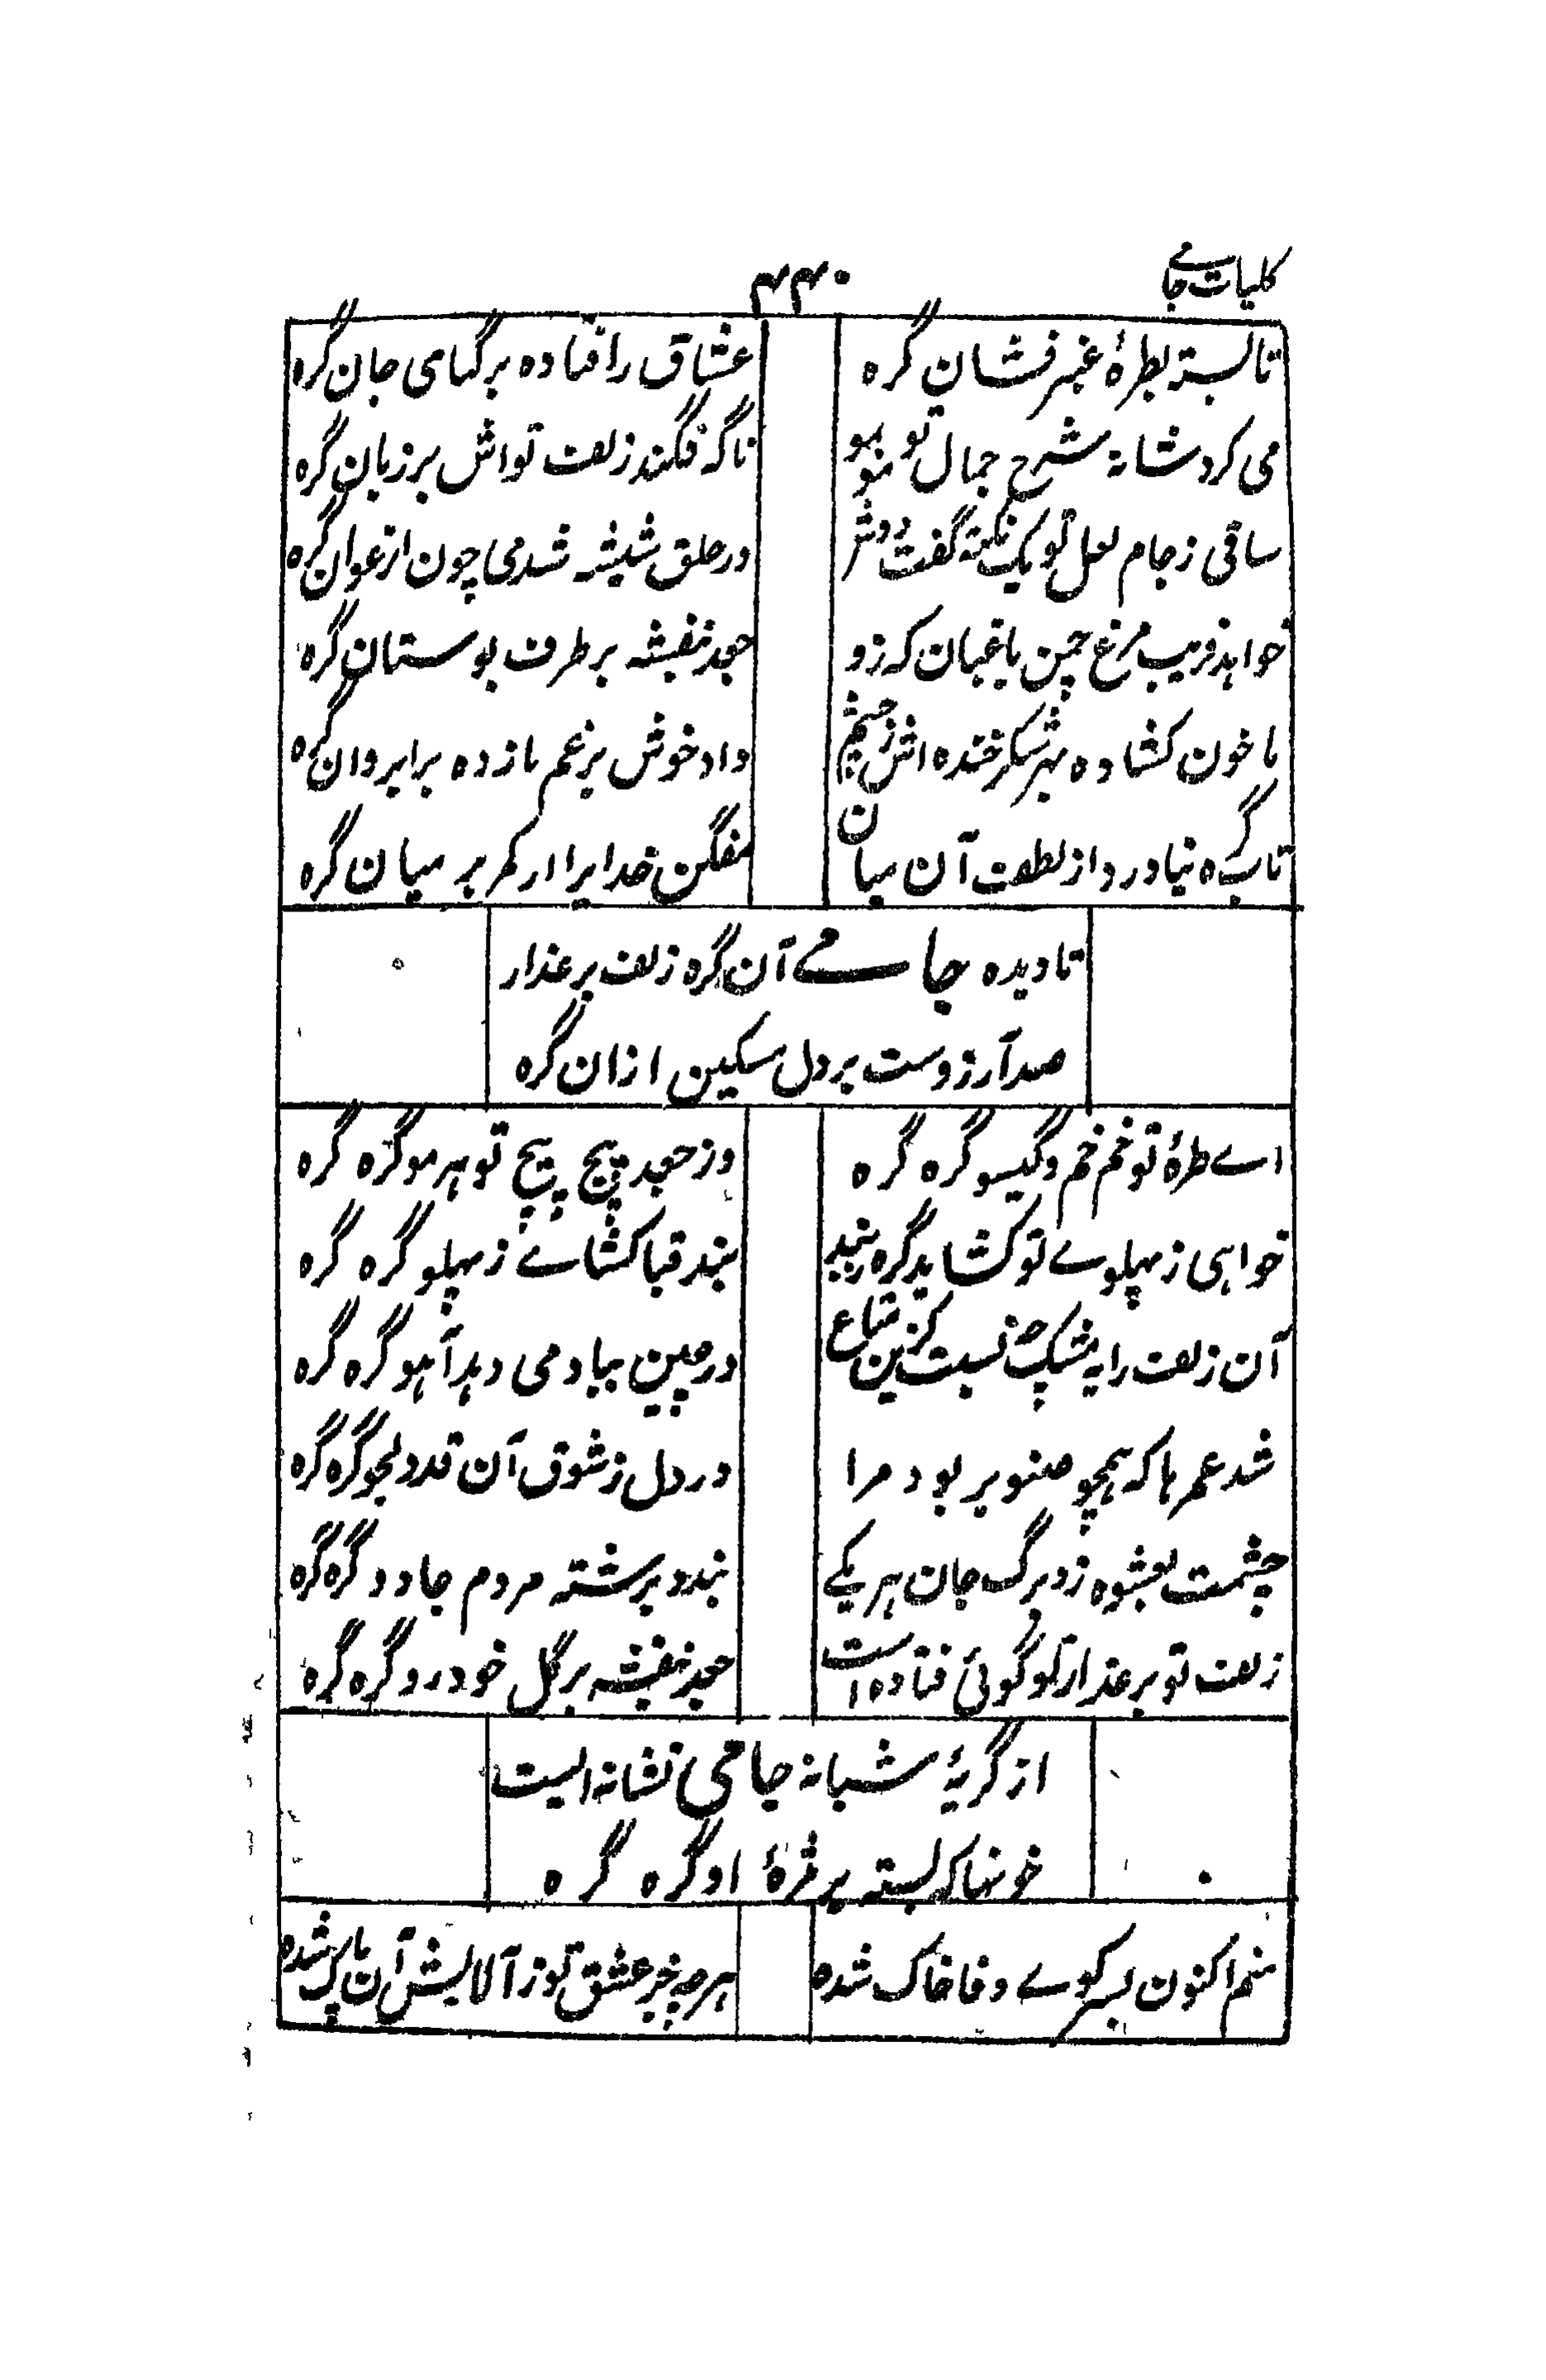 کلیات جامے
۴۴۰
تا بستۂ بطرۂ عنبر فشان گره
عشاق را فتاده برگهای جان گره
می کرد شانه شرح جمال تو مو بمو
ناگه فگند زلف تواش بر زبان گره
ساقی ز جام لعل تو یک نکته گفت دوش
در حلق شیشه شد می چون ارغوان گره
خواهد فریب مرغ چمن باغبان که زد
جعد بنفشه بر طرف بوستان گره
ما خون کشاده بهر شکر خنده اش ز چشم
واو خوش برغم ما زده بر ابروان گره
تاب گره نیاورد از لطف آن میان
مفگن خدایرا از کمر بر میان گره
تا دیده جامے آن گره زلف بر عذار
صد آرزوست بر دل مسکین ازان گره
اے طرۂ تو خم خم و گیسو گره گره
وز جعد پیچ پیچ تو هر مو گره گره
خواهی ز پهلوے تو کشاید گره ز بند
بند قبا کشاے ز پهلو گره گره
آن زلف را به مشک چه نسبت کزین متاع
در چین بباد می دهد آهو گره گره
شد عمرها که همچو صنوبر بود مرا
در دل ز شوق آن قد دلجو گره گره
چشمت بعشوه زد برگ جان هر یکے
بندد برشته مردم جادو گره گره
زلف تو بر عذار تو گوئی فتاده است
جعد بنفشه بر گل خود رو گره گره
از گریۂ شبانه جامی نشانه ایست
خونها که بسته بر مژۂ او گره گره
منم اکنون بسر کوے وفا خاک شده
هرچه جز عشق تو ز آلایش آن پاک شده